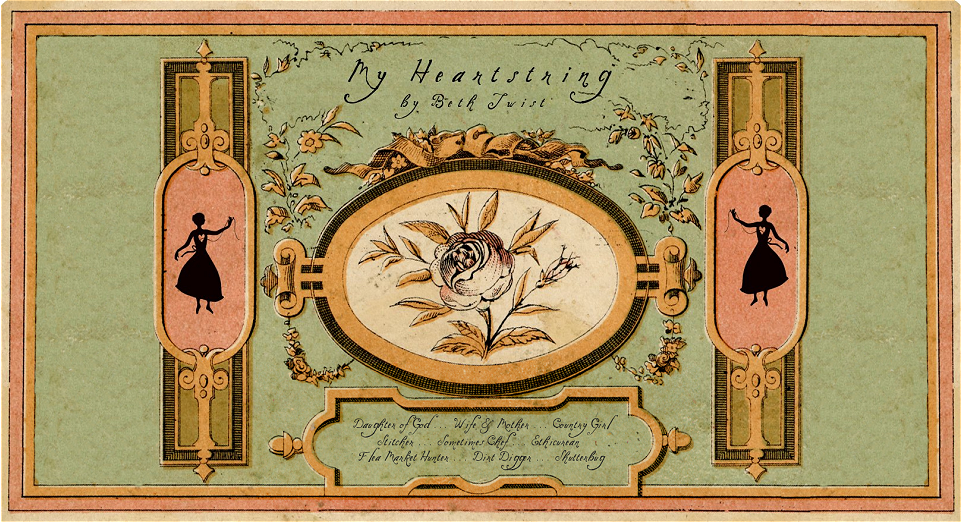 My Heartstring
by Beth Twist
Daughter of God ... Wife & Mother ... Country Girl
Stitcher ... Sometimes Chef ... Ethicurean
Flea Market Hunter ... Dirt Digger ... Shutterbug